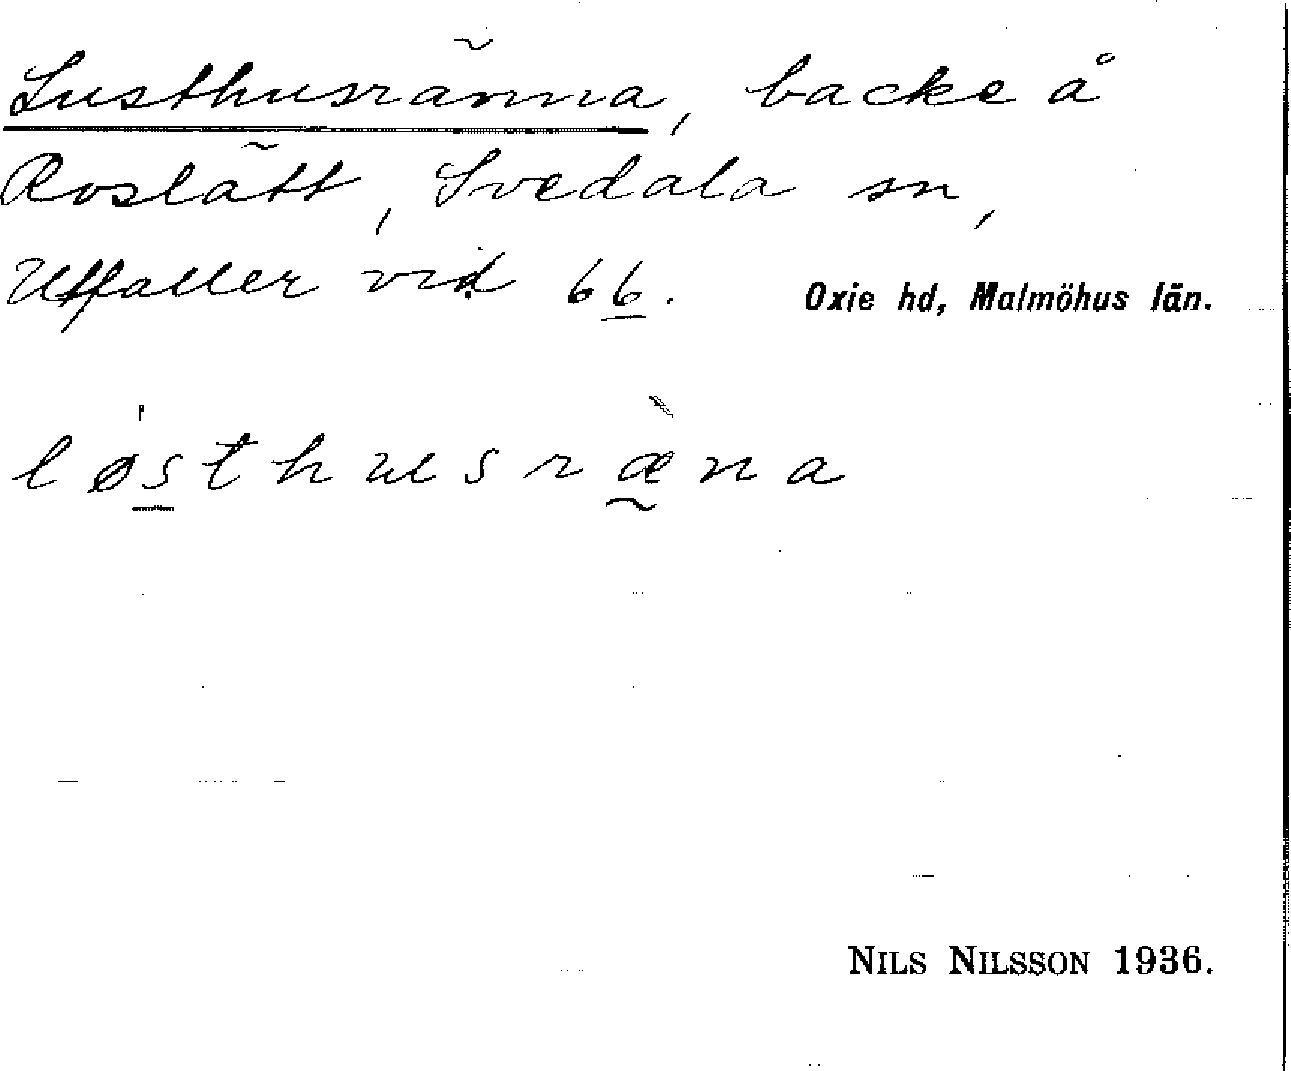 Lusthusränna, backe å
Roslätt, Svedala sn,
Utfaller vid 66.
Oxie hd, Malmöhus län.
løsthusræna
NILS NILSSON 1936.